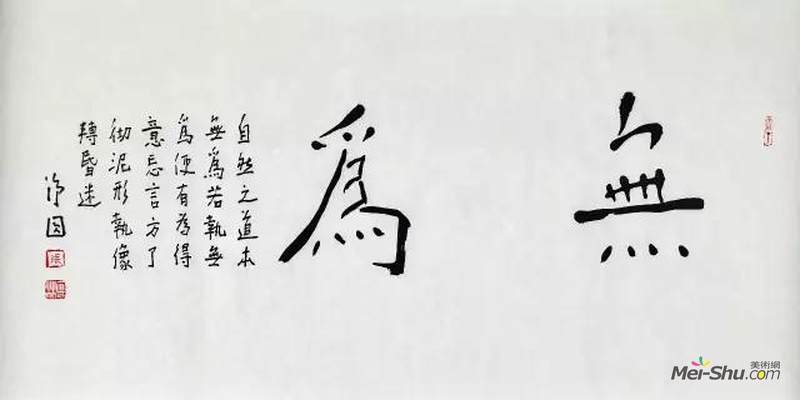 無爲
自然之道本
無爲若執無
爲便有為得
意忘言方了
彻泥形執像
轉昏迷
净因
美術網
Mei-Shu.com